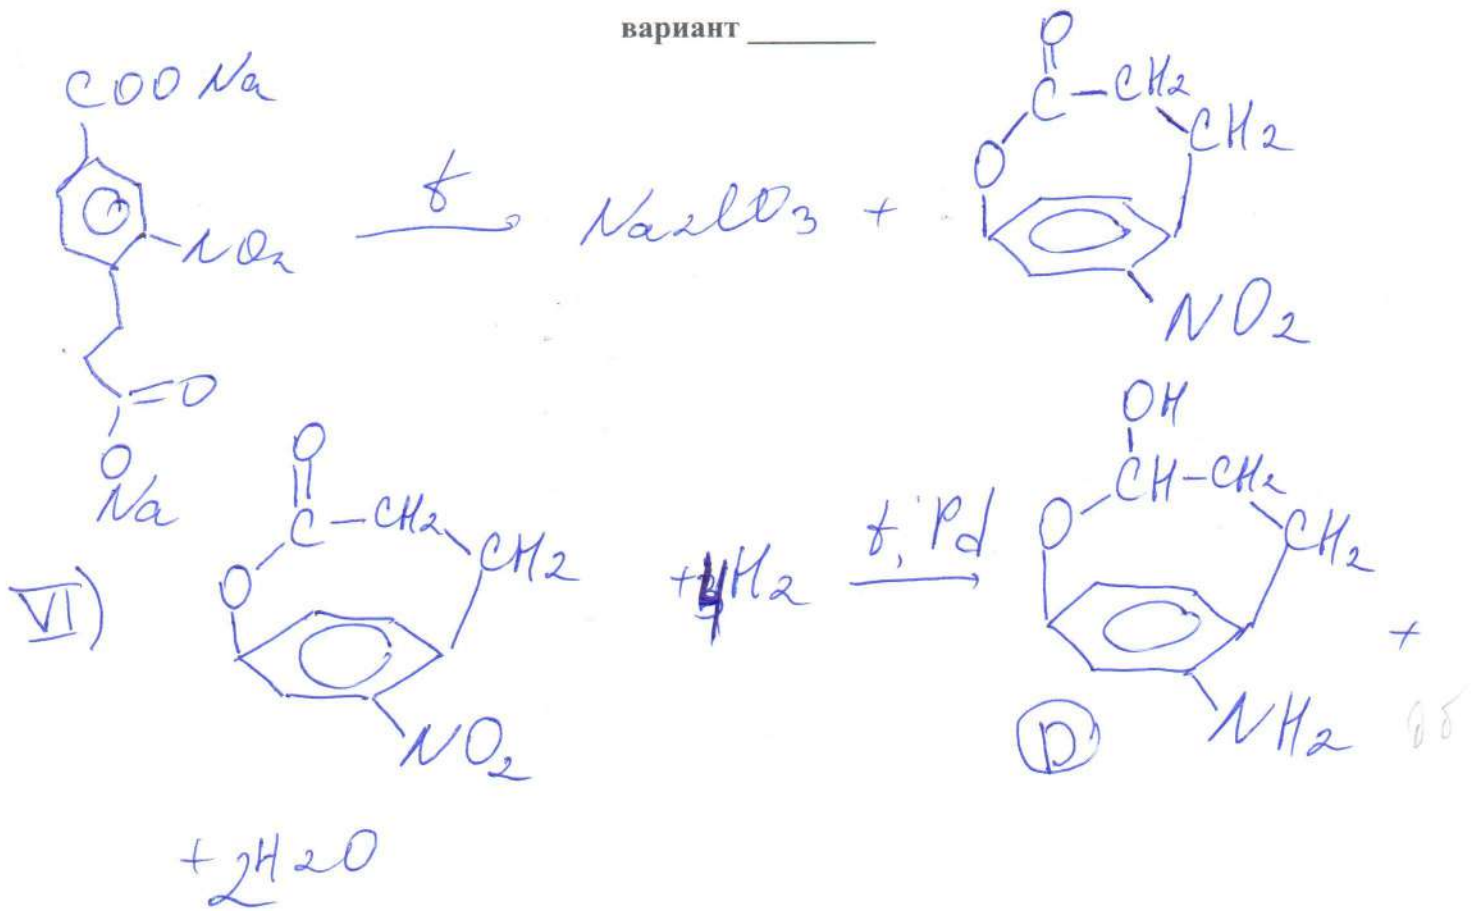 вариант ______
COONa
NO2
O
ONa
t
Na2CO3 +
O
C-CH2
CH2
O
NO2
VI)
O
C-CH2
CH2
O
NO2
+4H2
t, Pd
OH
CH-CH2
CH2
O
NH2
D
+
+2H2O